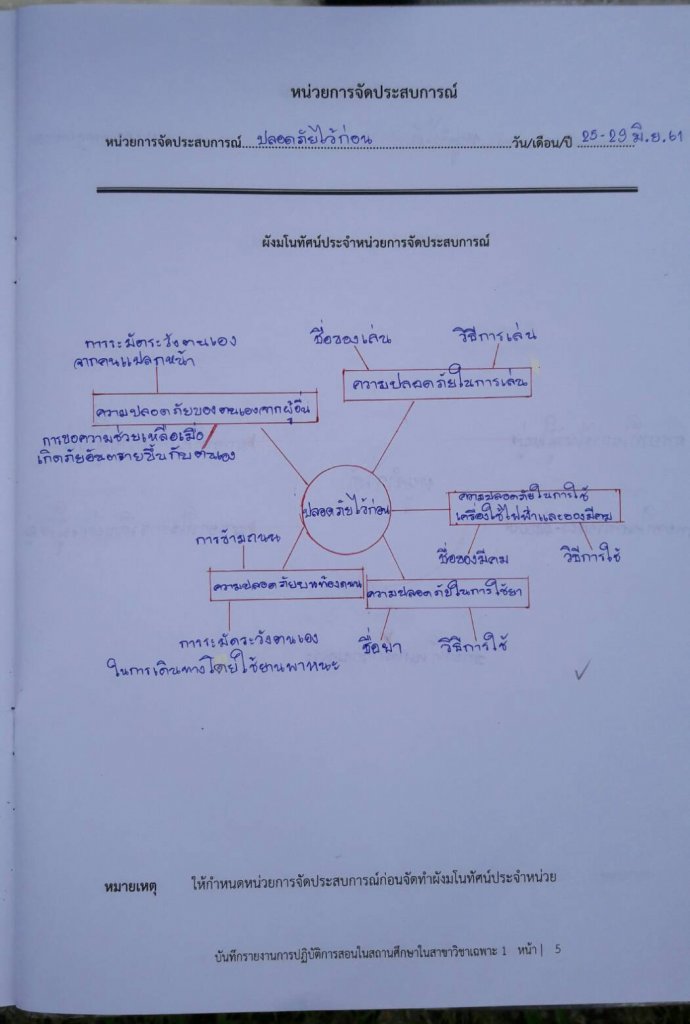 หน่วยการจัดประสบการณ์
หน่วยการจัดประสบการณ์ ปลอดภัยไว้ก่อน วัน/เดือน/ปี 25-29 มิ.ย. 61
ผังมโนทัศน์ประจำหน่วยการจัดประสบการณ์
การระมัดระวังตนเอง
จากคนแปลกหน้า
ชื่อของเล่น
วิธีการเล่น
ความปลอดภัยในการเล่น
ความปลอดภัยของตนเองจากผู้อื่น
การขอความช่วยเหลือเมื่อ
เกิดภัยอันตรายขึ้นกับตนเอง
ปลอดภัยไว้ก่อน
ความปลอดภัยในการใช้
เครื่องใช้ไฟฟ้าและของมีคม
ชื่อของมีคม
วิธีการใช้
การข้ามถนน
ความปลอดภัยบนท้องถนน
ความปลอดภัยในการใช้ยา
การระมัดระวังตนเอง
ในการเดินทางโดยใช้ยานพาหนะ
ชื่อยา
วิธีการใช้
หมายเหตุ ให้กำหนดหน่วยการจัดประสบการณ์ก่อนจัดทำผังมโนทัศน์ประจำหน่วย
บันทึกรายงานการปฏิบัติการสอนในสถานศึกษาในสาขาวิชาเฉพาะ 1 หน้า | 5